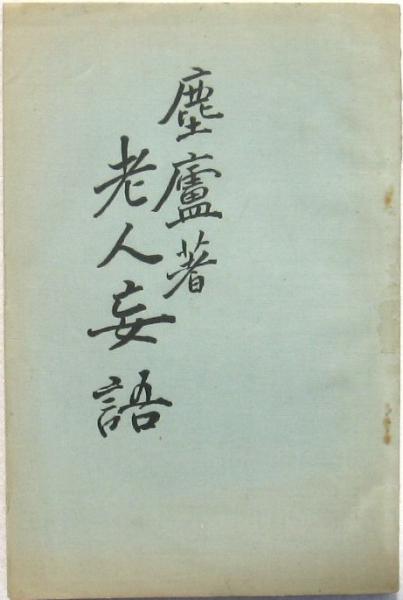 塵廬著
老人妄語